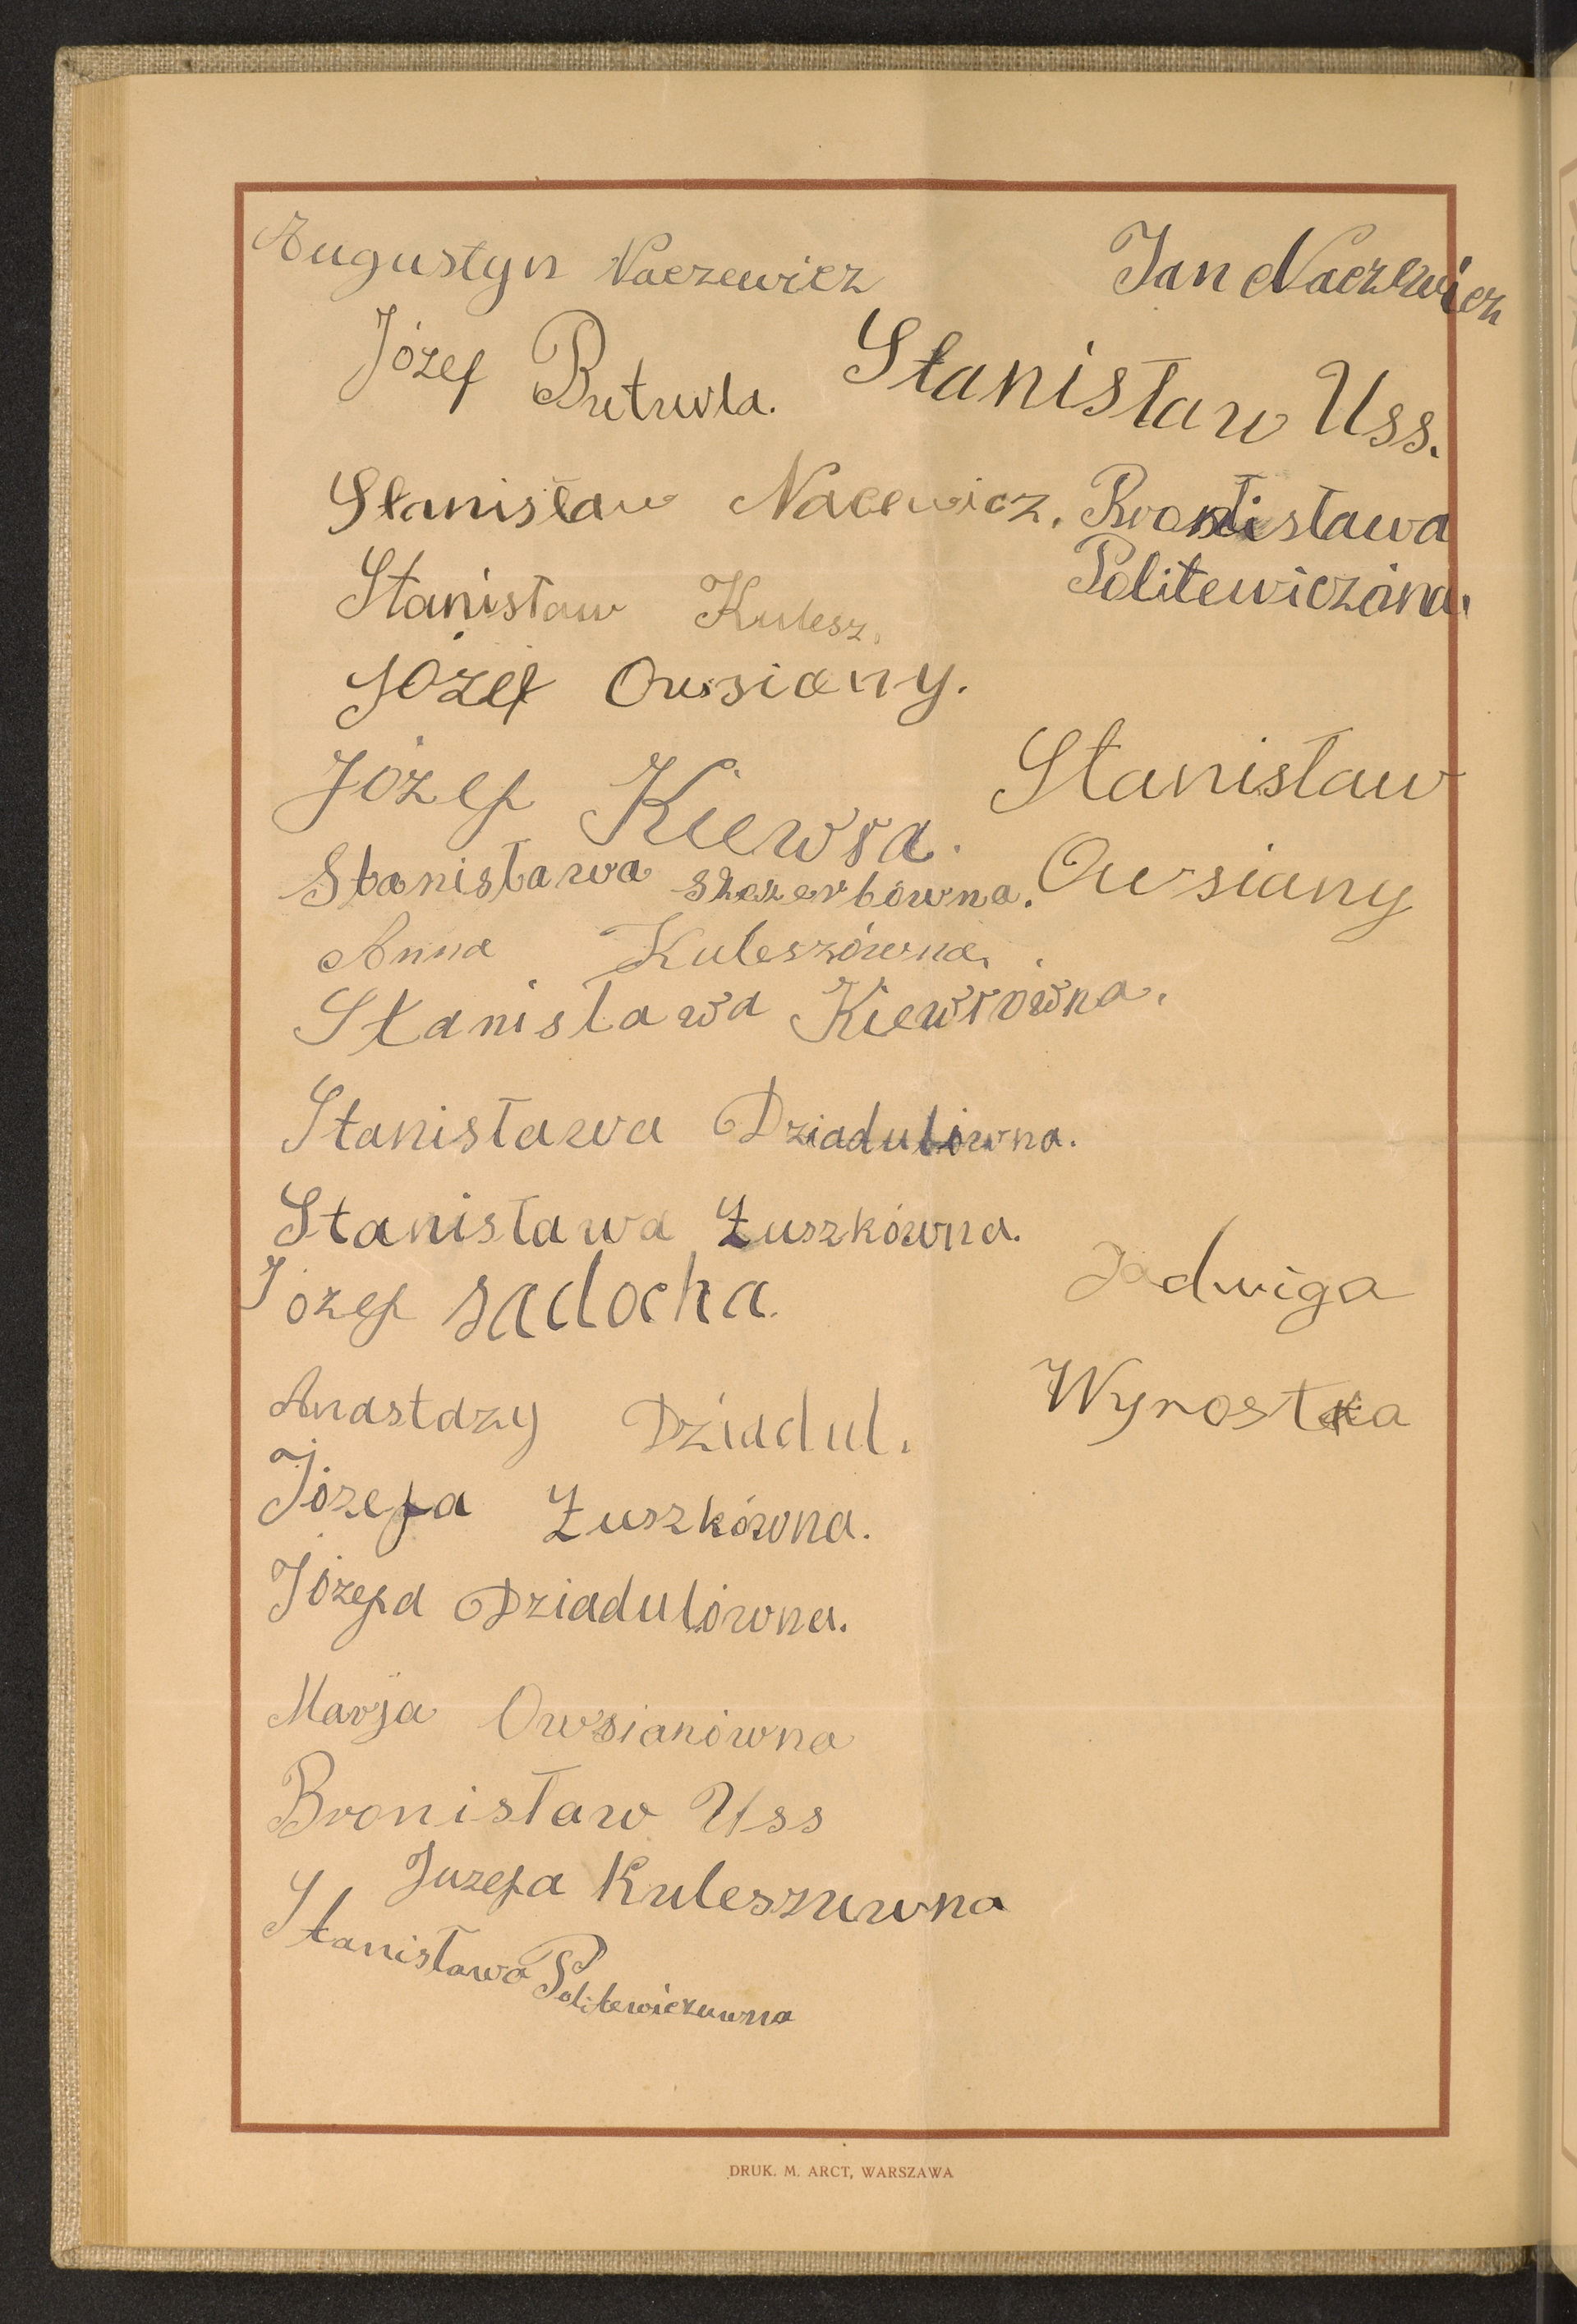 Augustyn Naczewicz
Jan Naczewicz
Józef Butuwła.
Stanisław Uss.
Stanisław Nacewicz.
Bronisława
Politewiczóna.
Stanisław Kulesz.
Józef Owsiany.
Józef Kiewra.
Stanisław
Owsiany
Stanisława Szczerbówna.
Anna Kuleszówna.
Stanisława Kiewrówna.
Stanisława Dziadulówna.
Stanisława Łuszkówna.
Józef sadocha.
Jadwiga
Wyrostka
Anastazy Dziadul.
Józefa Łuszkówna.
Józefa Dziadulówna.
Marja Owsianówna
Bronisław Uss
Juzefa Kuleszuwna
Stanisława Politewiczuwna
DRUK. M. ARCT, WARSZAWA